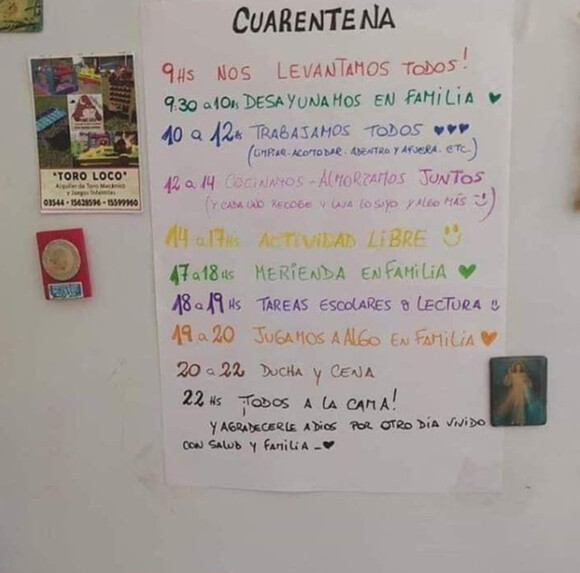 CUARENTENA
9HS NOS LEVANTAMOS TODOS!
9:30 a 10hs DESAYUNAMOS EN FAMILIA ♥
10 a 12hs TRABAJAMOS TODOS ♥♥♥
(LIMPIAR. ACOMODAR. ADENTRO Y AFUERA. ETC.)
12 a 14 COCINAMOS - ALMORZAMOS JUNTOS
(Y CADA UNO RECOGE Y LAVA LO SUYO Y ALGO MÁS)
14 a 17HS ACTIVIDAD LIBRE
17 a 18HS MERIENDA EN FAMILIA ♥
18 a 19HS TAREAS ESCOLARES o LECTURA
19 a 20 JUGAMOS A ALGO EN FAMILIA ♥
20 a 22 DUCHA y CENA
22HS ¡TODOS A LA CAMA!
Y AGRADECERLE A DIOS POR OTRO DÍA VIVIDO
CON SALUD Y FAMILIA - ♥
"TORO LOCO"
Alquiler de Toro Mecánico
y Juegos Infantiles
03544 - 15628596 - 15599960